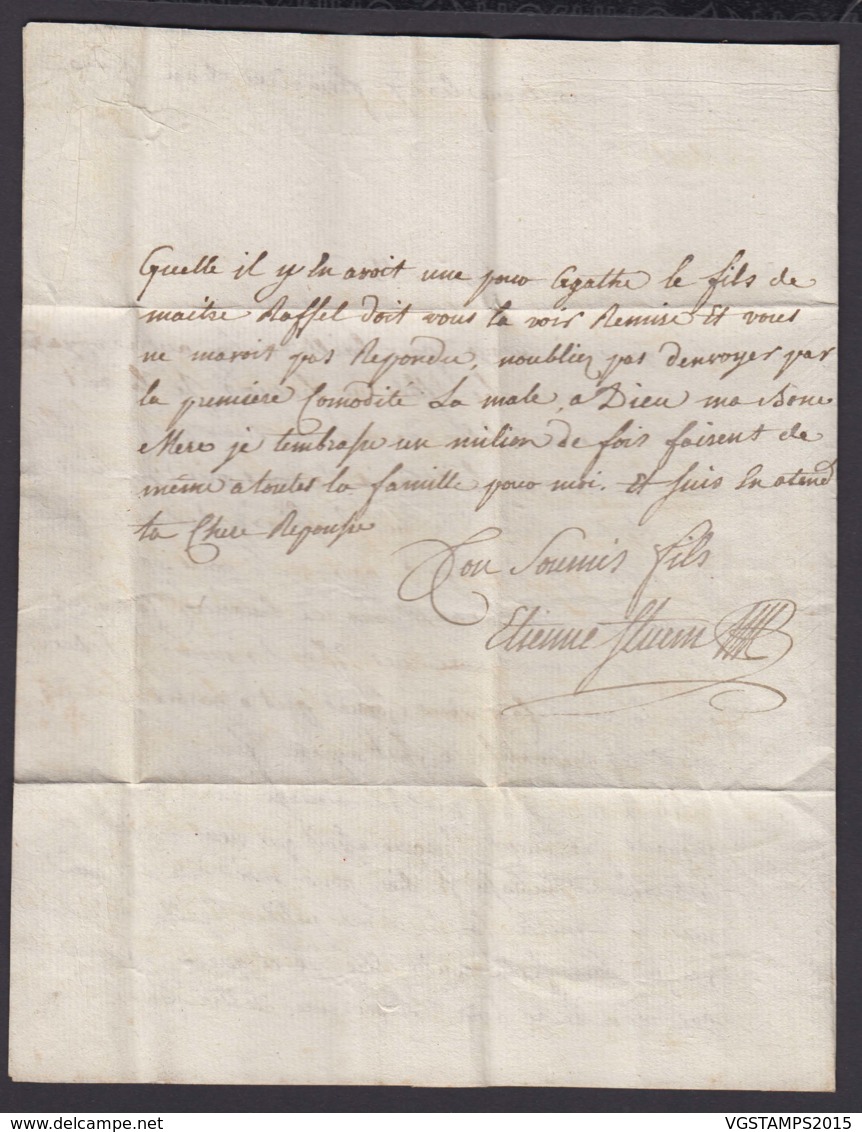 Quelle il y En avoit une pour Agathe le fils de
maitre Raffel doit vous la voir Remise Et vous
ne mavoit pas Repondu, noubliez pas denvoyer par
la premiere Comodité La male, a Dieu ma Bone
Mere je tembrasse un milion de fois faisent de
même a toutes la famille pour moi. Et suis En atend
ta Chere Reponse
Ton Soumis fils
Etienne
VGSTAMPS2015